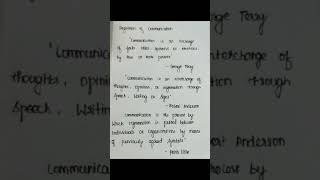 Definition of Communication
"Communication is an exchange
of facts ideas opinions or emotions
by two or more persons"
- George Terry
"Communication is an interchange of
thoughts, opinions, or information through
speech, writing or signs"
- Robert Anderson
Communication is the process by
which information is passed between
individuals or organizations by means
of previously agreed symbols"
- Peter Little
"Communic
thoughts, opini
Speech, Writing
Communicat
interchange of
ation through
bert Anderson
by